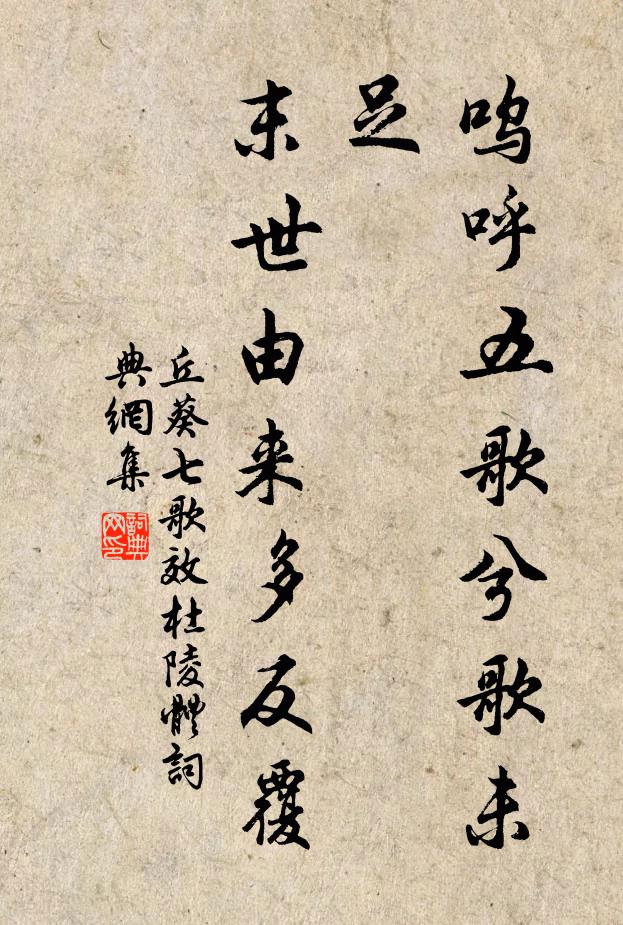 嗚呼五歌兮歌未
足
末世由来多反覆
丘葵七歌效杜陵體詞
典網集
詞典
网印